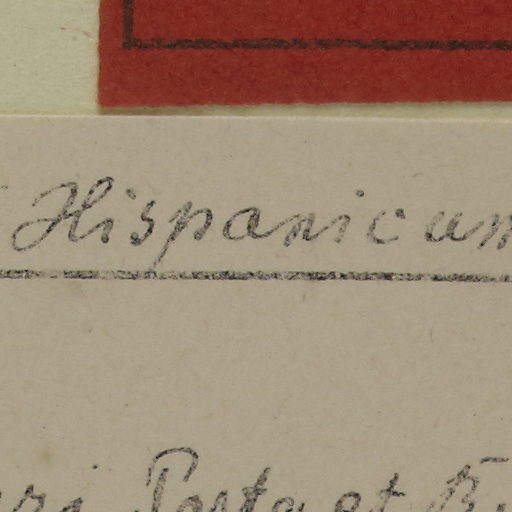 Hispanicum
Porta et B